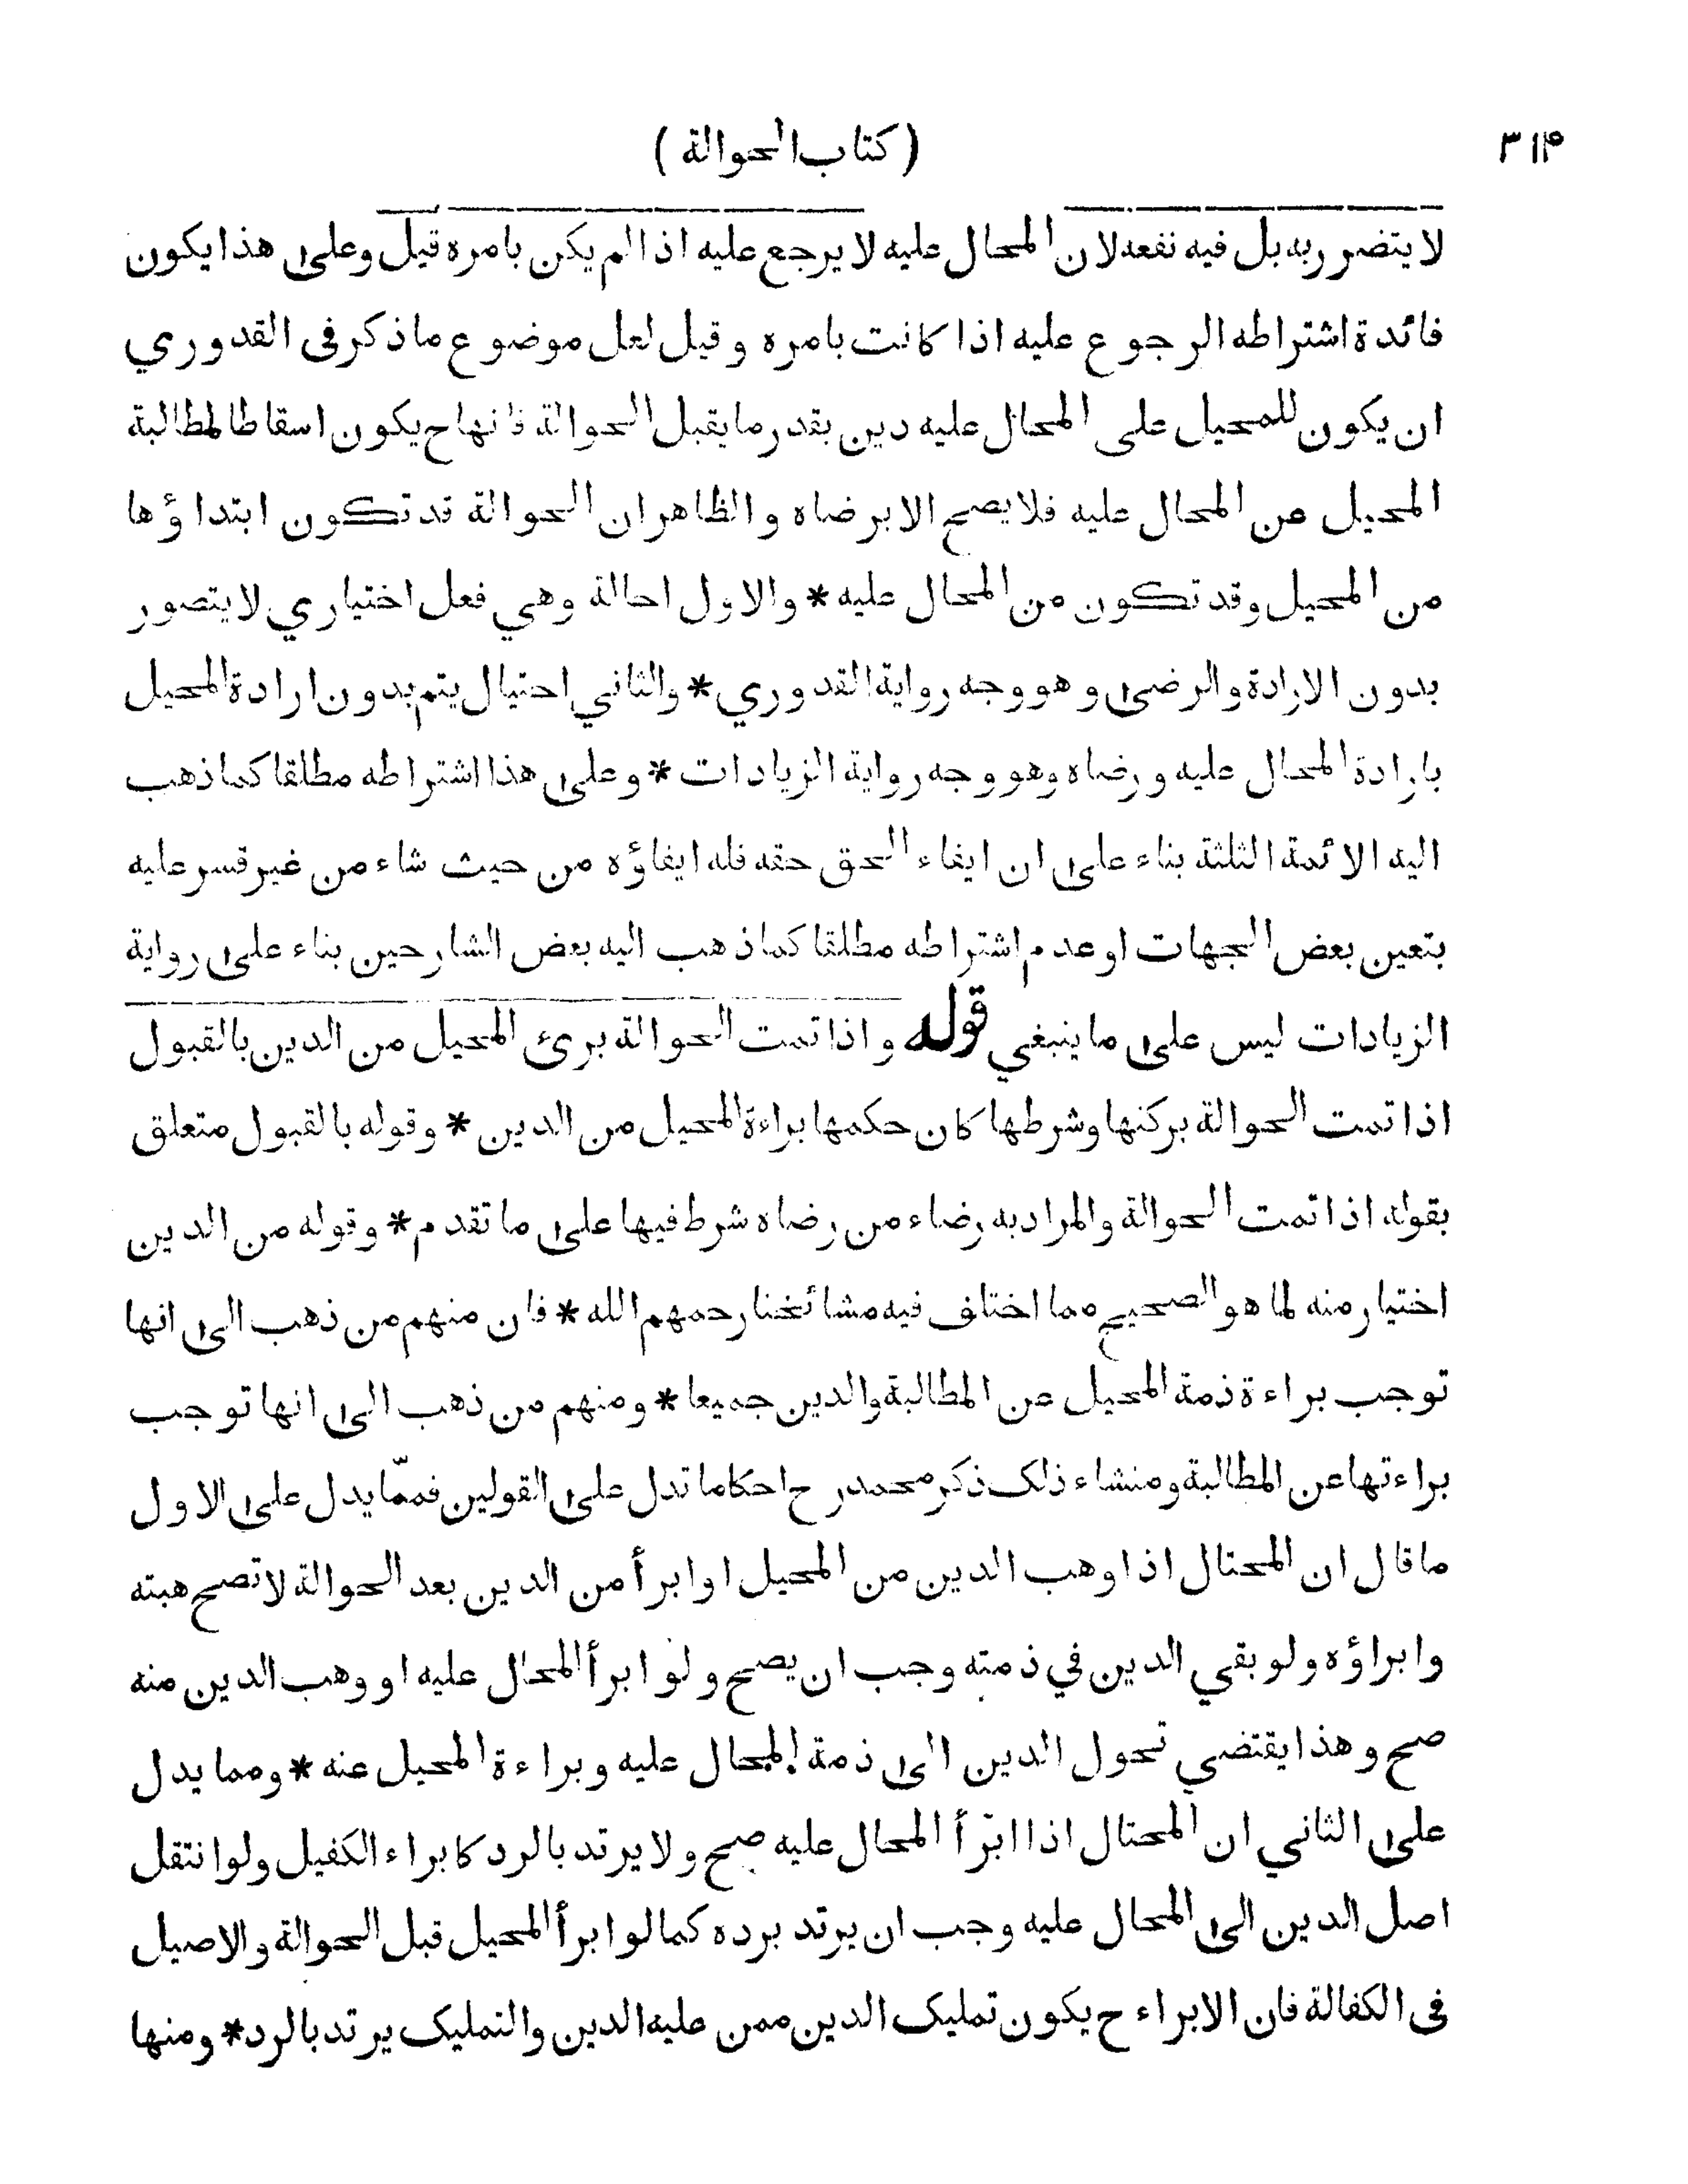 ٣١۴
( كتاب الحوالة )
لا يتضرر به بل فيه نفعه لان المحال عليه لا يرجع عليه اذا لم يكن بامره قيل وعلى هذا يكون
فائدة اشتراطه الرجوع عليه اذا كانت بامره وقيل لعل موضوع ما ذكر فى القدوري
ان يكون للمحيل على المحال عليه دين بقدر ما يقبل الحوالة فانها ح يكون اسقاطا لمطالبة
المحيل عن المحال عليه فلا يصح الا برضاه والظاهر ان الحوالة قد تكون ابتداؤها
من المحيل وقد تكون من المحال عليه * والاول احالة وهي فعل اختياري لا يتصور
بدون الارادة والرضى وهو وجه رواية القدوري * والثاني احتيال يتم بدون ارادة المحيل
بارادة المحال عليه ورضاه وهو وجه رواية الزيادات * وعلى هذا اشتراطه مطلقا كما ذهب
اليه الائمة الثلثة بناء على ان ايفاء الحق حقه فله ايفاؤه من حيث شاء من غير قسر عليه
بتعين بعض الجهات او عدم اشتراطه مطلقا كما ذهب اليه بعض الشارحين بناء على رواية
الزيادات ليس على ما ينبغي قوله واذا تمت الحوالة برئ المحيل من الدين بالقبول
اذا تمت الحوالة بركنها وشرطها كان حكمها براءة المحيل من الدين * وقوله بالقبول متعلق
بقوله اذا تمت الحوالة والمراد به رضاء من رضاه شرط فيها على ما تقدم * وقوله من الدين
اختيار منه لما هو الصحيح مما اختلف فيه مشائخنا رحمهم الله * فان منهم من ذهب الى انها
توجب براءة ذمة المحيل عن المطالبة والدين جميعا * ومنهم من ذهب الى انها توجب
براءتها عن المطالبة ومنشاء ذلك ذكر محمد رح احكاما تدل على القولين فممّا يدل على الاول
ما قال ان المحتال اذا وهب الدين من المحيل او ابرأ من الدين بعد الحوالة لا تصح هبته
وابراؤه ولو بقي الدين في ذمته وجب ان يصح ولو ابرأ المحال عليه او وهب الدين منه
صح وهذا يقتضي تحول الدين الى ذمة المحال عليه وبراءة المحيل عنه * ومما يدل
على الثاني ان المحتال اذا ابرأ المحال عليه صح ولا يرتد بالرد كابراء الكفيل ولو انتقل
اصل الدين الى المحال عليه وجب ان يرتد برده كما لو ابرأ المحيل قبل الحوالة والاصيل
فى الكفالة فان الابراء ح يكون تمليك الدين ممن عليه الدين والتمليك يرتد بالرد * ومنها